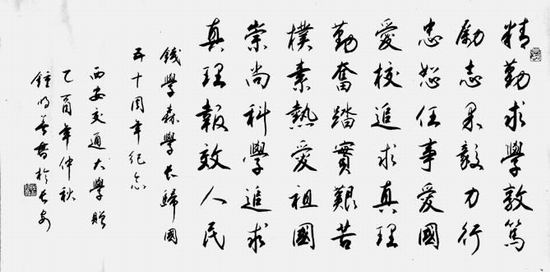 精勤求學敦篤
勵志果毅力行
忠恕任事愛國
愛校追求真理
勤奮踏實艱苦
樸素熱愛祖國
崇尚科學追求
真理報效人民
錢學森學長歸國
五十周年纪念
西安交通大學贈
乙酉年仲秋
鍾明善書於长安